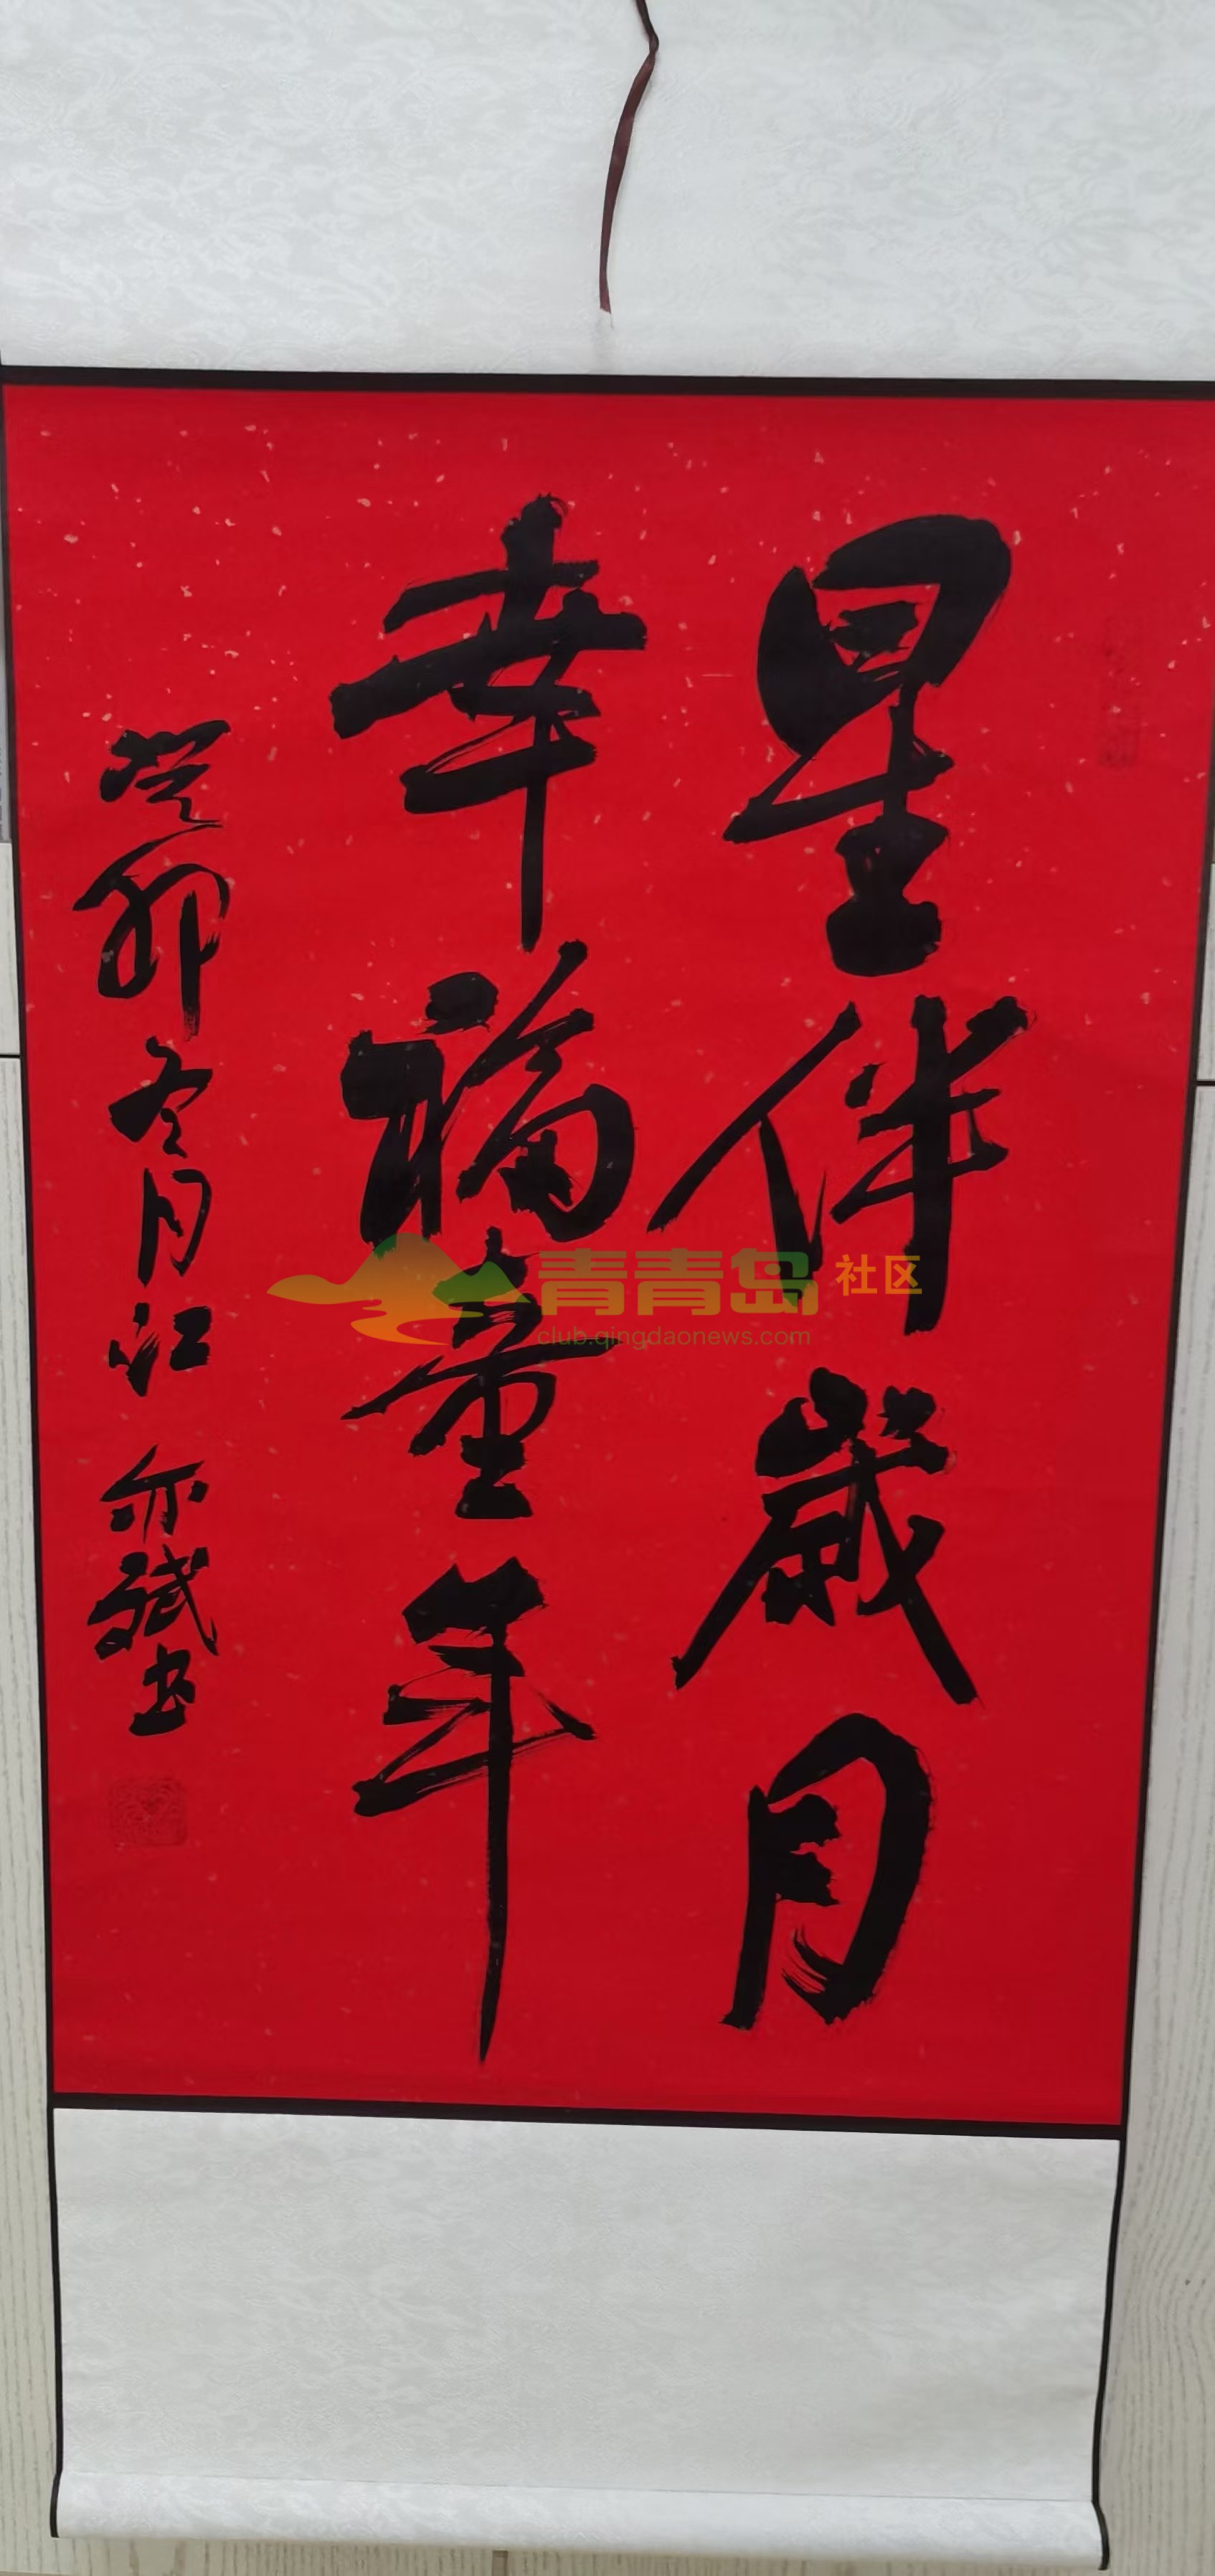 星伴歲月
幸福童年
癸卯冬月江亦斌书
青青岛社区
club.qingdaonews.com